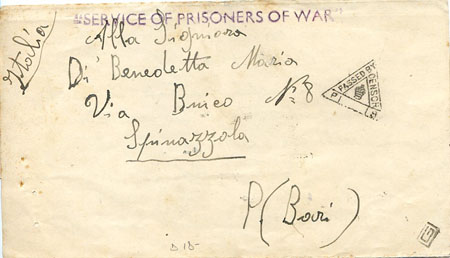 "SERVICE OF PRISONERS OF WAR"
Italia
Alla Signora
Di Benedetta Maria
Via Buico N. 8
PASSED BY CENSOR
Spinazzola
P. (Bari)